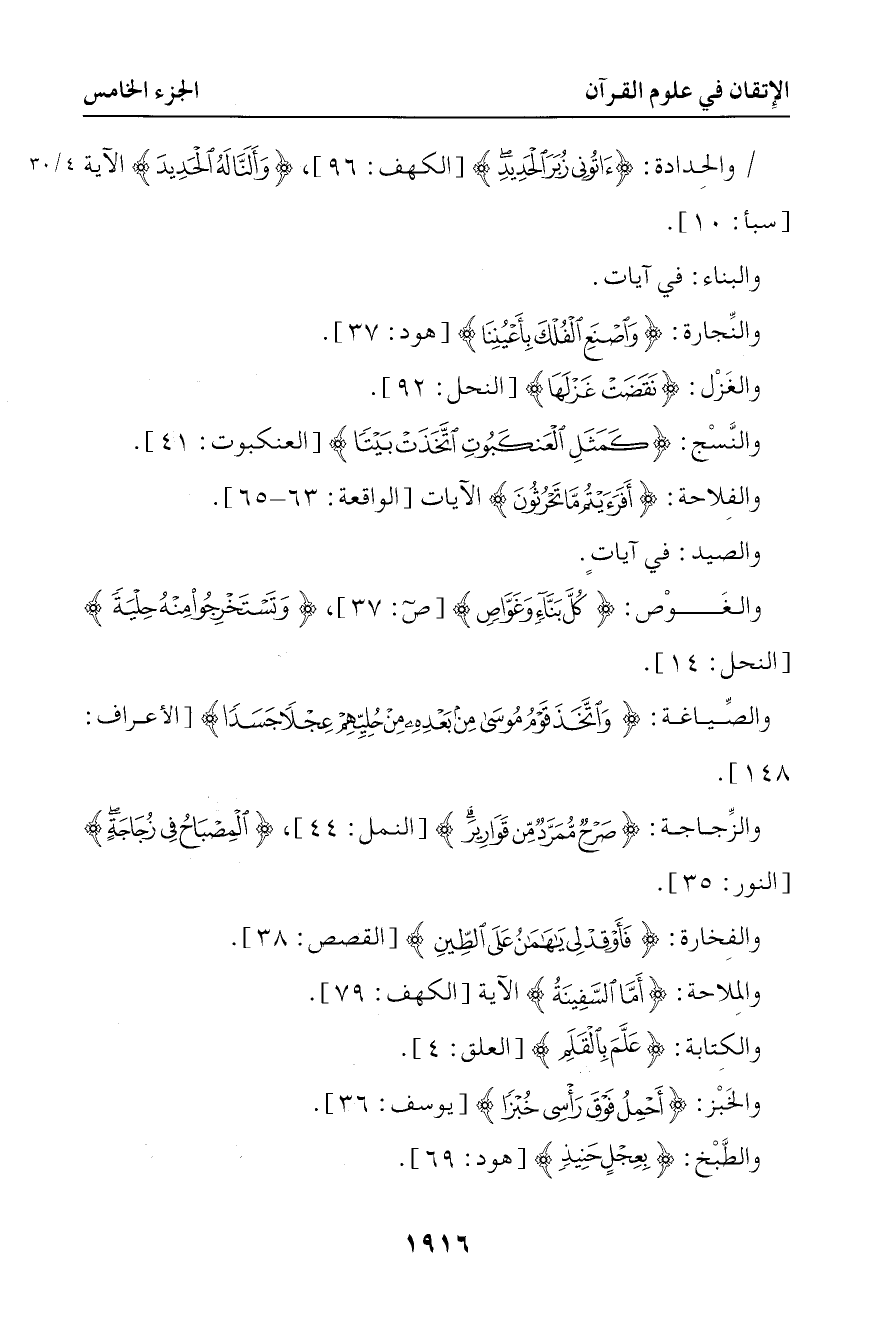 الإتقان في علوم القرآن الجزء الخامس
/ والحِدادة: ﴿ءَاتُونِى زُبَرَ ٱلْحَدِيدِۖ﴾ [الكهف: ٩٦]، ﴿وَأَلَنَّا لَهُ ٱلْحَدِيدَ﴾ الآية ٣٠/٤
[سبأ: ١٠].
والبناء: في آيات.
والنِّجارة: ﴿وَٱصْنَعِ ٱلْفُلْكَ بِأَعْيُنِنَا﴾ [هود: ٣٧].
والغَزْل: ﴿نَقَضَتْ غَزْلَهَا﴾ [النحل: ٩٢].
والنَّسْج: ﴿كَمَثَلِ ٱلْعَنكَبُوتِ ٱتَّخَذَتْ بَيْتًا﴾ [العنكبوت: ٤١].
والفلاحة: ﴿أَفَرَءَيْتُم مَّا تَحْرُثُونَ﴾ الآيات [الواقعة: ٦٣–٦٥].
والصيد: في آياتٍ.
والغَـــوْص: ﴿كُلَّ بَنَّآءٍ وَغَوَّاصٍ﴾ [صٓ: ٣٧]، ﴿وَتَسْتَخْرِجُوا۟ مِنْهُ حِلْيَةً﴾
[النحل: ١٤].
والصِّياغة: ﴿وَٱتَّخَذَ قَوْمُ مُوسَىٰ مِنۢ بَعْدِهِۦ مِنْ حُلِيِّهِمْ عِجْلًا جَسَدًا﴾ [الأعراف:
١٤٨].
والزِّجاجة: ﴿صَرْحٌ مُّمَرَّدٌ مِّن قَوَارِيرَۗ﴾ [النمل: ٤٤]، ﴿ٱلْمِصْبَاحُ فِى زُجَاجَةٍۖ﴾
[النور: ٣٥].
والفخارة: ﴿فَأَوْقِدْ لِى يَٰهَٰمَٰنُ عَلَى ٱلطِّينِ﴾ [القصص: ٣٨].
والمِلاحة: ﴿أَمَّا ٱلسَّفِينَةُ﴾ الآية [الكهف: ٧٩].
والكِتابة: ﴿عَلَّمَ بِٱلْقَلَمِ﴾ [العلق: ٤].
والخَبْز: ﴿أَحْمِلُ فَوْقَ رَأْسِى خُبْزًا﴾ [يوسف: ٣٦].
والطَّبْخ: ﴿بِعِجْلٍ حَنِيذٍ﴾ [هود: ٦٩].
١٩١٦